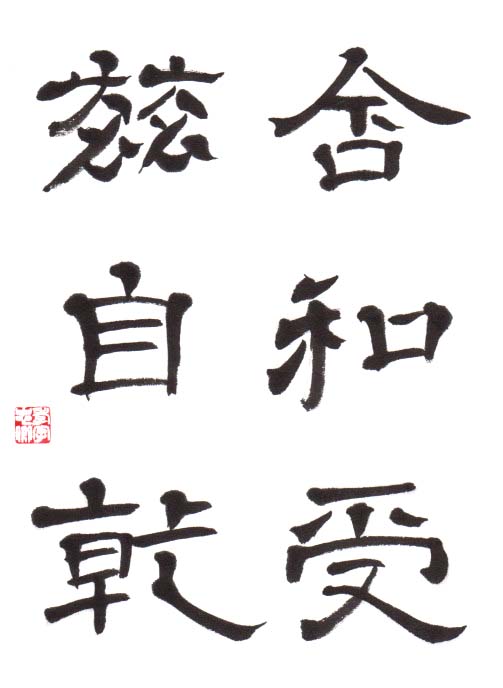 含和受
玆自乾